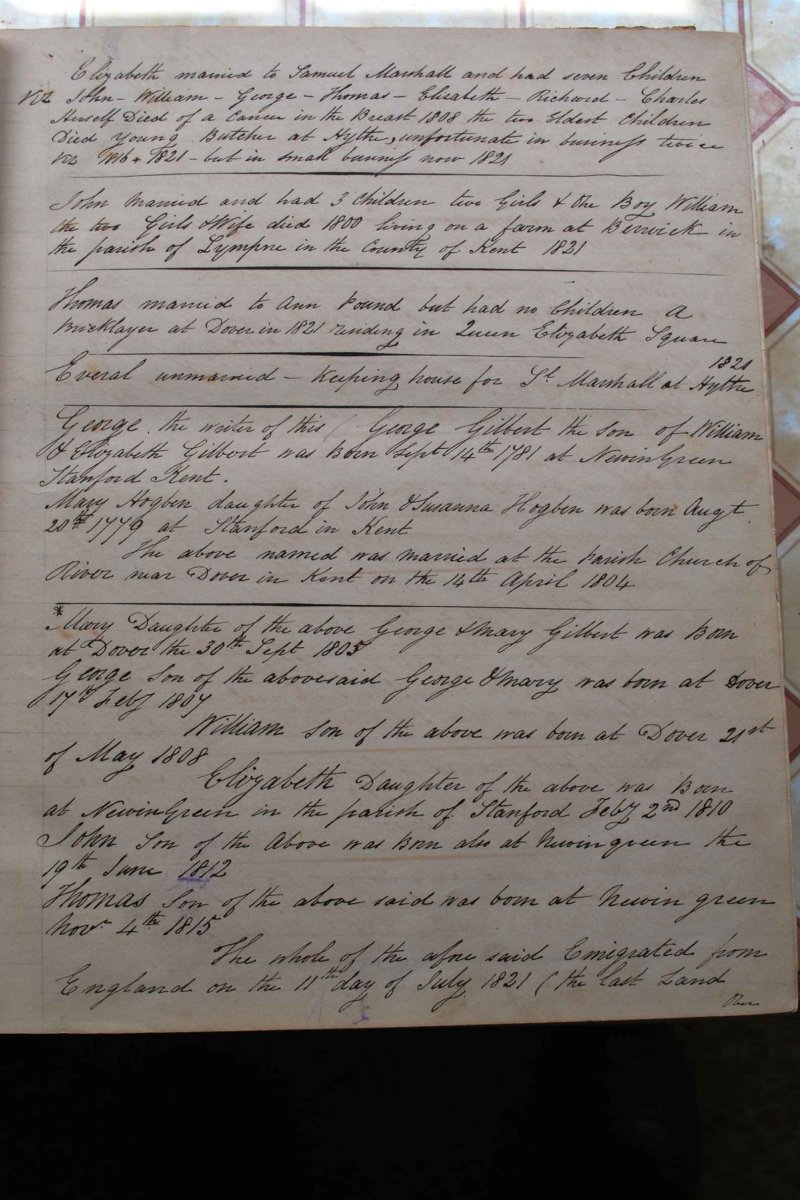 Elizabeth married to Samuel Marshall and had seven Children
Viz John - William - George - Thomas - Elizabeth - Richard - Charles
Herself Died of a Cancer in the Breast 1808 the two Eldest Children
Died Young Butcher at Hythe, unfortunate in business twice
Viz 1816 & 1821 - but in small business now 1821
John Married and had 3 Children two Girls & One Boy William
the two Girls & Wife died 1800 living on a farm at Berwick in
the parish of Lympne in the County of Kent 1821
Thomas married to Ann Pound but had no Children A
Bricklayer at Dover in 1821 residing in Queen Elizabeth Square
1821
Everal unmarried - Keeping house for Sl Marshall at Hythe
George the writer of this ( George Gilbert the Son of William
& Elizabeth Gilbert was Born Sept 14th 1781 at NewinGreen
Stanford Kent.
Mary Hogben daughter of John & Susanna Hogben was born Augt
20th 1779 at Stanford in Kent
The above named was married at the Parish Church of
River near Dover in Kent on the 14th April 1804
* Mary Daughter of the above George & Mary Gilbert was Born
at Dover the 30th Sept 1805
George Son of the abovesaid George & Mary was born at Dover
17th Feby 1807
William Son of the above was born at Dover 21st
of May 1808
Elizabeth Daughter of the above was Born
at NewinGreen in the parish of Stanford Feby 2nd 1810
John Son of the Above was Born also at Newingreen the
19th June 1812
Thomas Son of the above said was born at Newin green
Novr 4th 1815
The whole of the afore said Emigrated from
England on the 11th day of July 1821 ( the last Land
Over